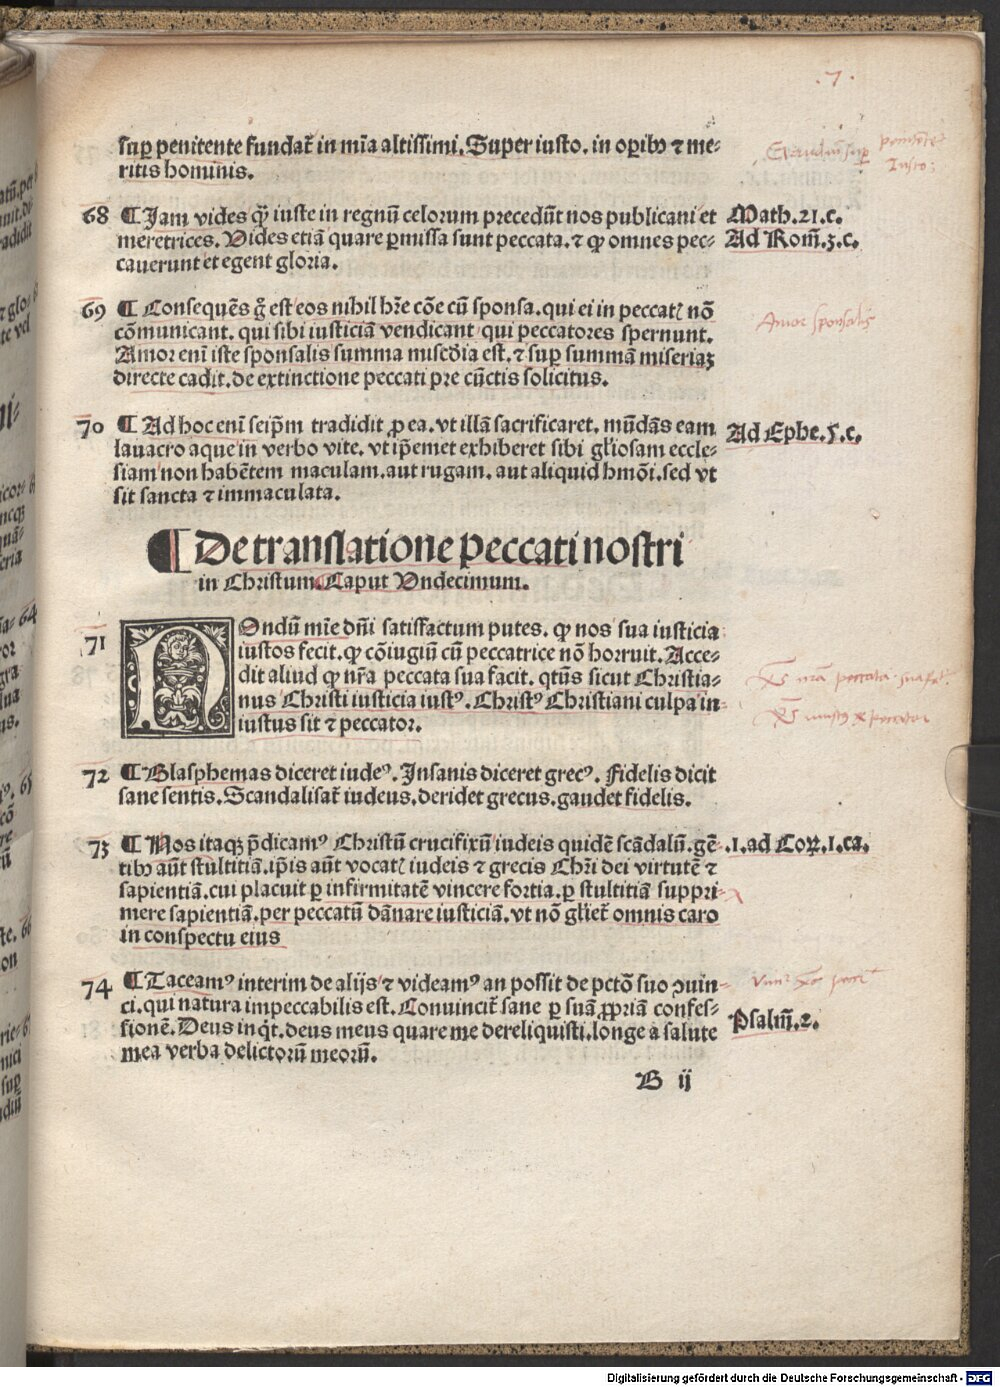 .7.
suꝑ penitente fundat᷑ in mīa altissimi. Super iusto. in oꝑibꝫ ⁊ me-
ritis hominis.
68 ¶ Jam vides qͥ iuste in regnū celorum precedūt nos publicani et
Math. 21. c.
meretrices. Vides etiā quare ꝑmissa sunt peccata. ⁊ ꝙ omnes pec-
Ad Rom̄. 3. c.
cauerunt et egent gloria.
69 ¶ Consequēs g̊ est eos nihil hr̄e cōe cū sponsa. qui ei in peccatꝭ nō
cōmunicant. qui sibi iusticiā vendicant qui peccatores spernunt.
Amor sponsalis
Amor eni iste sponsalis summa misc̄dia est. ⁊ suꝑ summā miseriaꝫ
directe cadit. de extinctione peccati pre cūctis solicitus.
70 ¶ Ad hoc eni seip̄m tradidit ꝓ ea. vt illā sacrificaret. mūdās eam
Ad Ephe. 5. c.
lauacro aque in verbo vite. vt ip̄emet exhiberet sibi gl'iosam eccle-
siam non habētem maculam. aut rugam. aut aliquid hmōi. sed vt
sit sancta ⁊ immaculata.
¶ De translatione peccati nostri
in Christum. Caput Vndecimum.
71 NOndū mīe dn̄i satisfactum putes. ꝙ nos sua iusticia
iustos fecit. ꝙ cōiugiū cū peccatrice nō horruit. Acce-
dit aliud ꝙ nr̄a peccata sua facit. qtūs sicut Christia-
nus Christi iusticia iustꝰ. Christꝰ Christiani culpa in-
iustus sit ⁊ peccator.
72 ¶ Blasphemas diceret iudeꝰ. Insanis diceret grecꝰ. Fidelis dicit
sane sentis. Scandalisat᷑ iudeus. deridet grecus. gaudet fidelis.
73 ¶ Nos itaqꝫ p̄dicamꝰ Christū crucifixū iudeis quidē scādalū. gē-
.1. ad Coꝝ. 1. ca.
tibꝫ aūt stultitiā. ip̄is aūt vocatꝭ iudeis ⁊ grecis Chr̄i dei virtutē ⁊
sapientiā. cui placuit ꝑ infirmitatē vincere fortia. ꝑ stultitiā suppri-
mere sapientiā. per peccatū dānare iusticiā. vt nō gl'iet᷑ omnis caro
in conspectu eius
74 ¶ Taceamꝰ interim de alijs ⁊ videamꝰ an possit de pctō suo ꝯuin-
ci. qui natura impeccabilis est. Conuincit᷑ sane ꝑ suā ꝓpriā confes-
sionē. Deus inqͥt. deus meus quare me dereliquisti. longe a salute
Psalm̄. 2.
mea verba delictorū meorū.
B ij
Digitalisierung gefördert durch die Deutsche Forschungsgemeinschaft - DFG